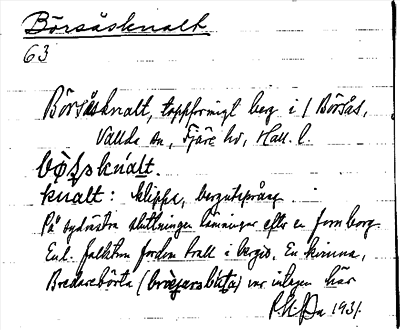 Börsåsknalt
63
Börsåsknalt, toppformigt berg i / Börsås,
Vallda sn, Fjäre hd, Hall. l.
knalt: klippa, bergutsprång
På sydvästra sluttningen lämningar efter en fornborg.
Enl. folktron fordom troll i berget. En kvinna,
Bredarebörta ( ) var intagen här
1931.